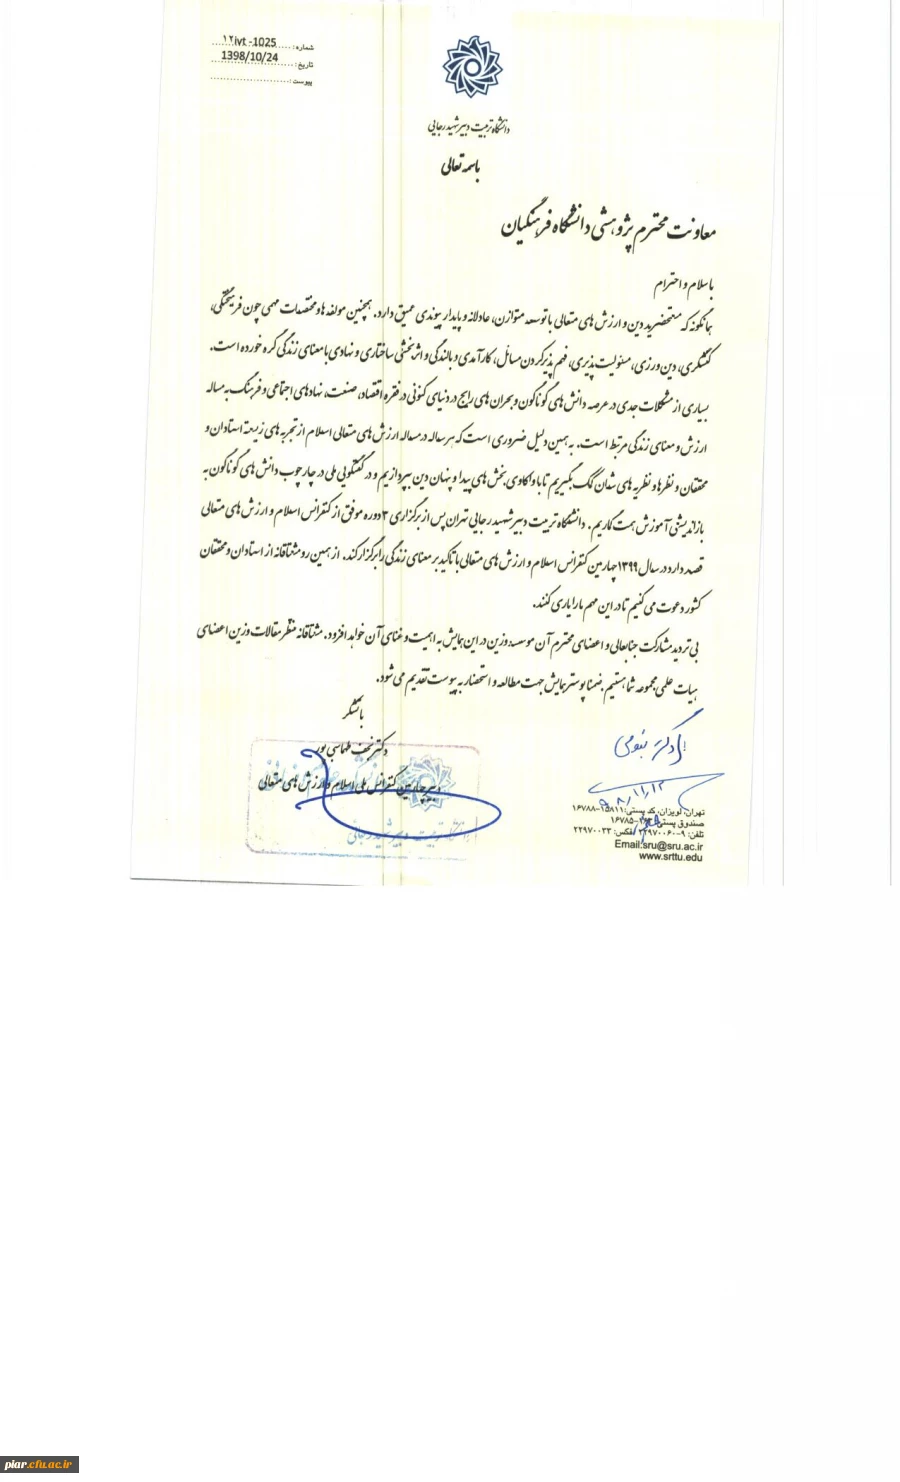 شماره: ۱۲ivt -1025
تاریخ: 1398/10/24
پیوست:
دانشگاه تربیت دبیر شهید رجایی
باسمه تعالی
معاونت محترم پژوهشی دانشگاه فرهنگیان
با سلام و احترام
همانگونه که مستحضرید دین و ارزش های متعالی با توسعه متوازن، عادلانه و پایدار پیوندی عمیق دارد. همچنین مولفه ها و مختصات مهمی چون فرهیختگی،
کنشگری، دین ورزی، مسئولیت پذیری، فهم پذیر کردن مسائل، کارآمدی و بالندگی و اثربخشی ساختاری و نهادی با معنای زندگی گره خورده است.
بسیاری از مشکلات جدی در عرصه دانش های گوناگون و بحران های رایج در دنیای کنونی در فقره اقتصاد، صنعت، نهادهای اجتماعی و فرهنگ به مساله
ارزش و معنای زندگی مرتبط است. به همین دلیل ضروری است که هر ساله در مساله ارزش های متعالی اسلام از تجربه های زیسته استادان و
محققان و نظرها و نظریه های شان کمک بگیریم تا با واکاوی بخش های پیدا و پنهان دین بپردازیم و در گفتگویی ملی در چارچوب دانش های گوناگون به
بازاندیشی آموزش همت گماریم. دانشگاه تربیت دبیر شهید رجایی تهران پس از برگزاری ۳ دوره موفق از کنفرانس اسلام و ارزش های متعالی
قصد دارد در سال ۱۳۹۹ چهارمین کنفرانس اسلام و ارزش های متعالی با تاکید بر معنای زندگی را برگزار کند. از همین رو مشتاقانه از استادان و محققان
کشور دعوت می کنیم تا در این مهم ما را یاری کنند.
بی تردید مشارکت جنابعالی و اعضای محترم آن موسسه وزین در این همایش به اهمیت و غنای آن خواهد افزود. مشتاقانه منتظر مقالات وزین اعضای
هیات علمی مجموعه شما هستیم. ضمنا پوستر همایش جهت مطالعه و استحضار به پیوست تقدیم می شود.
با تشکر
دکتر نجف طهماسبی پور
دبیر چهارمین کنفرانس ملی اسلام و ارزش های متعالی
دانشگاه تربیت دبیر شهید رجائی
۹۸/۱۱/۱۲
تهران، لویزان، کد پستی: ۱۵۸۱۱-۱۶۷۸۸
صندوق پستی: ۱۶۷۸۵-
تلفن: ۹-۲۲۹۷۰۰۶۰ فکس: ۲۲۹۷۰۰۳۳
Email:sru@sru.ac.ir
www.srttu.edu
piar.cfu.ac.ir